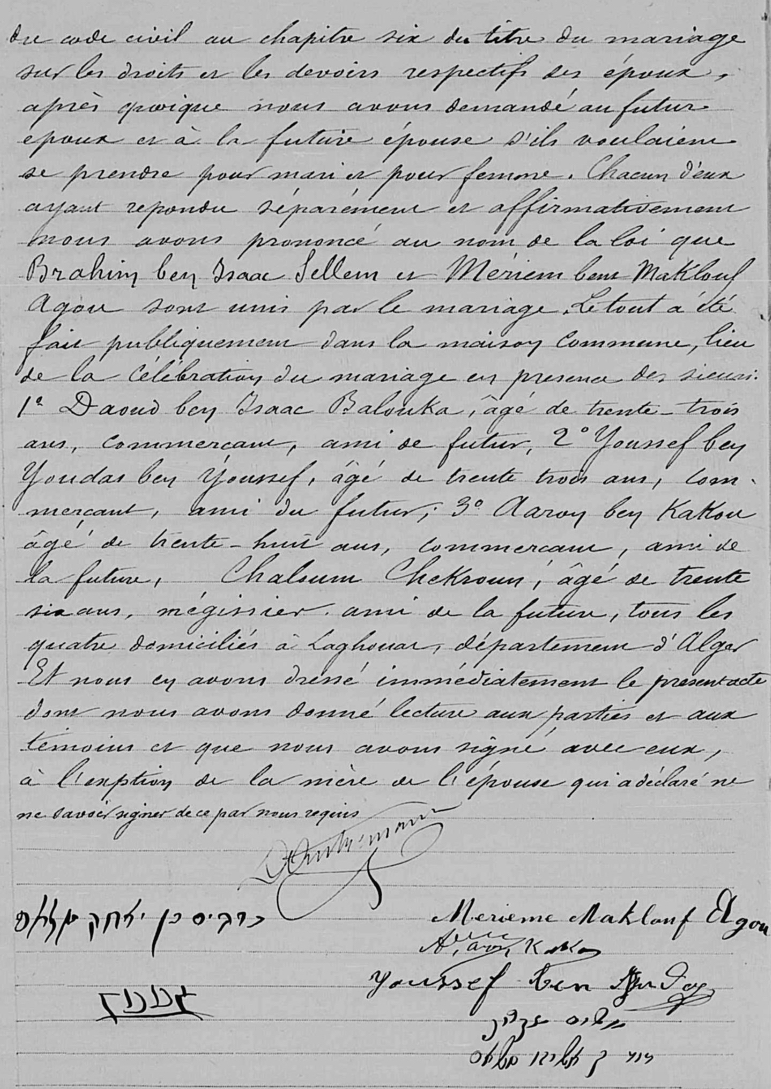 du code civil au chapitre six du titre du mariage
sur les droits et les devoirs respectifs des époux,
après quoique nous avons demandé au futur
epoux et à la future épouse s'ils voulaient
se prendre pour mari et pour femme. Chacun d'eux
ayant repondu séparément et affirmativement
nous avons prononcé au nom de la loi que
Brahim ben Isaac Sellem et Mériem bent Maklouf
Agou sont unis par le mariage. Le tout a été
fait publiquement dans la maison commune, lieu
de la célébration du mariage en presence des sieurs:
1º Daoud ben Isaac Balouka, âgé de trente-trois
ans, commercant, ami de futur, 2º Youssef ben
Youdas ben Youssef, âgé de trente trois ans, com-
mercant, ami du futur; 3º Aaron ben Kakou
âgé de trente-huit ans, commercant, ami de
la future, Chaloum Chekroun, âgé de trente
six ans, mégissier, ami de la future, tous les
quatre domiciliés à Laghouat, département d'Alger
Et nous en avons dressé immédiatement le present acte
dont nous avons donné lecture aux parties et aux
témoins et que nous avons signé avec eux,
à l'exption de la mère de l'épouse qui a déclaré ne
ne savoir signer de ce par nous requis
Merieme Maklouf Elgou
Aaron Kakou
Youssef ben